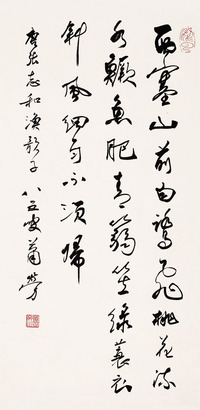 西塞山前白鹭飞桃花流
水鳜鱼肥青箬笠绿蓑衣
斜风细雨不须归
唐张志和渔歌子 八五叟萧劳